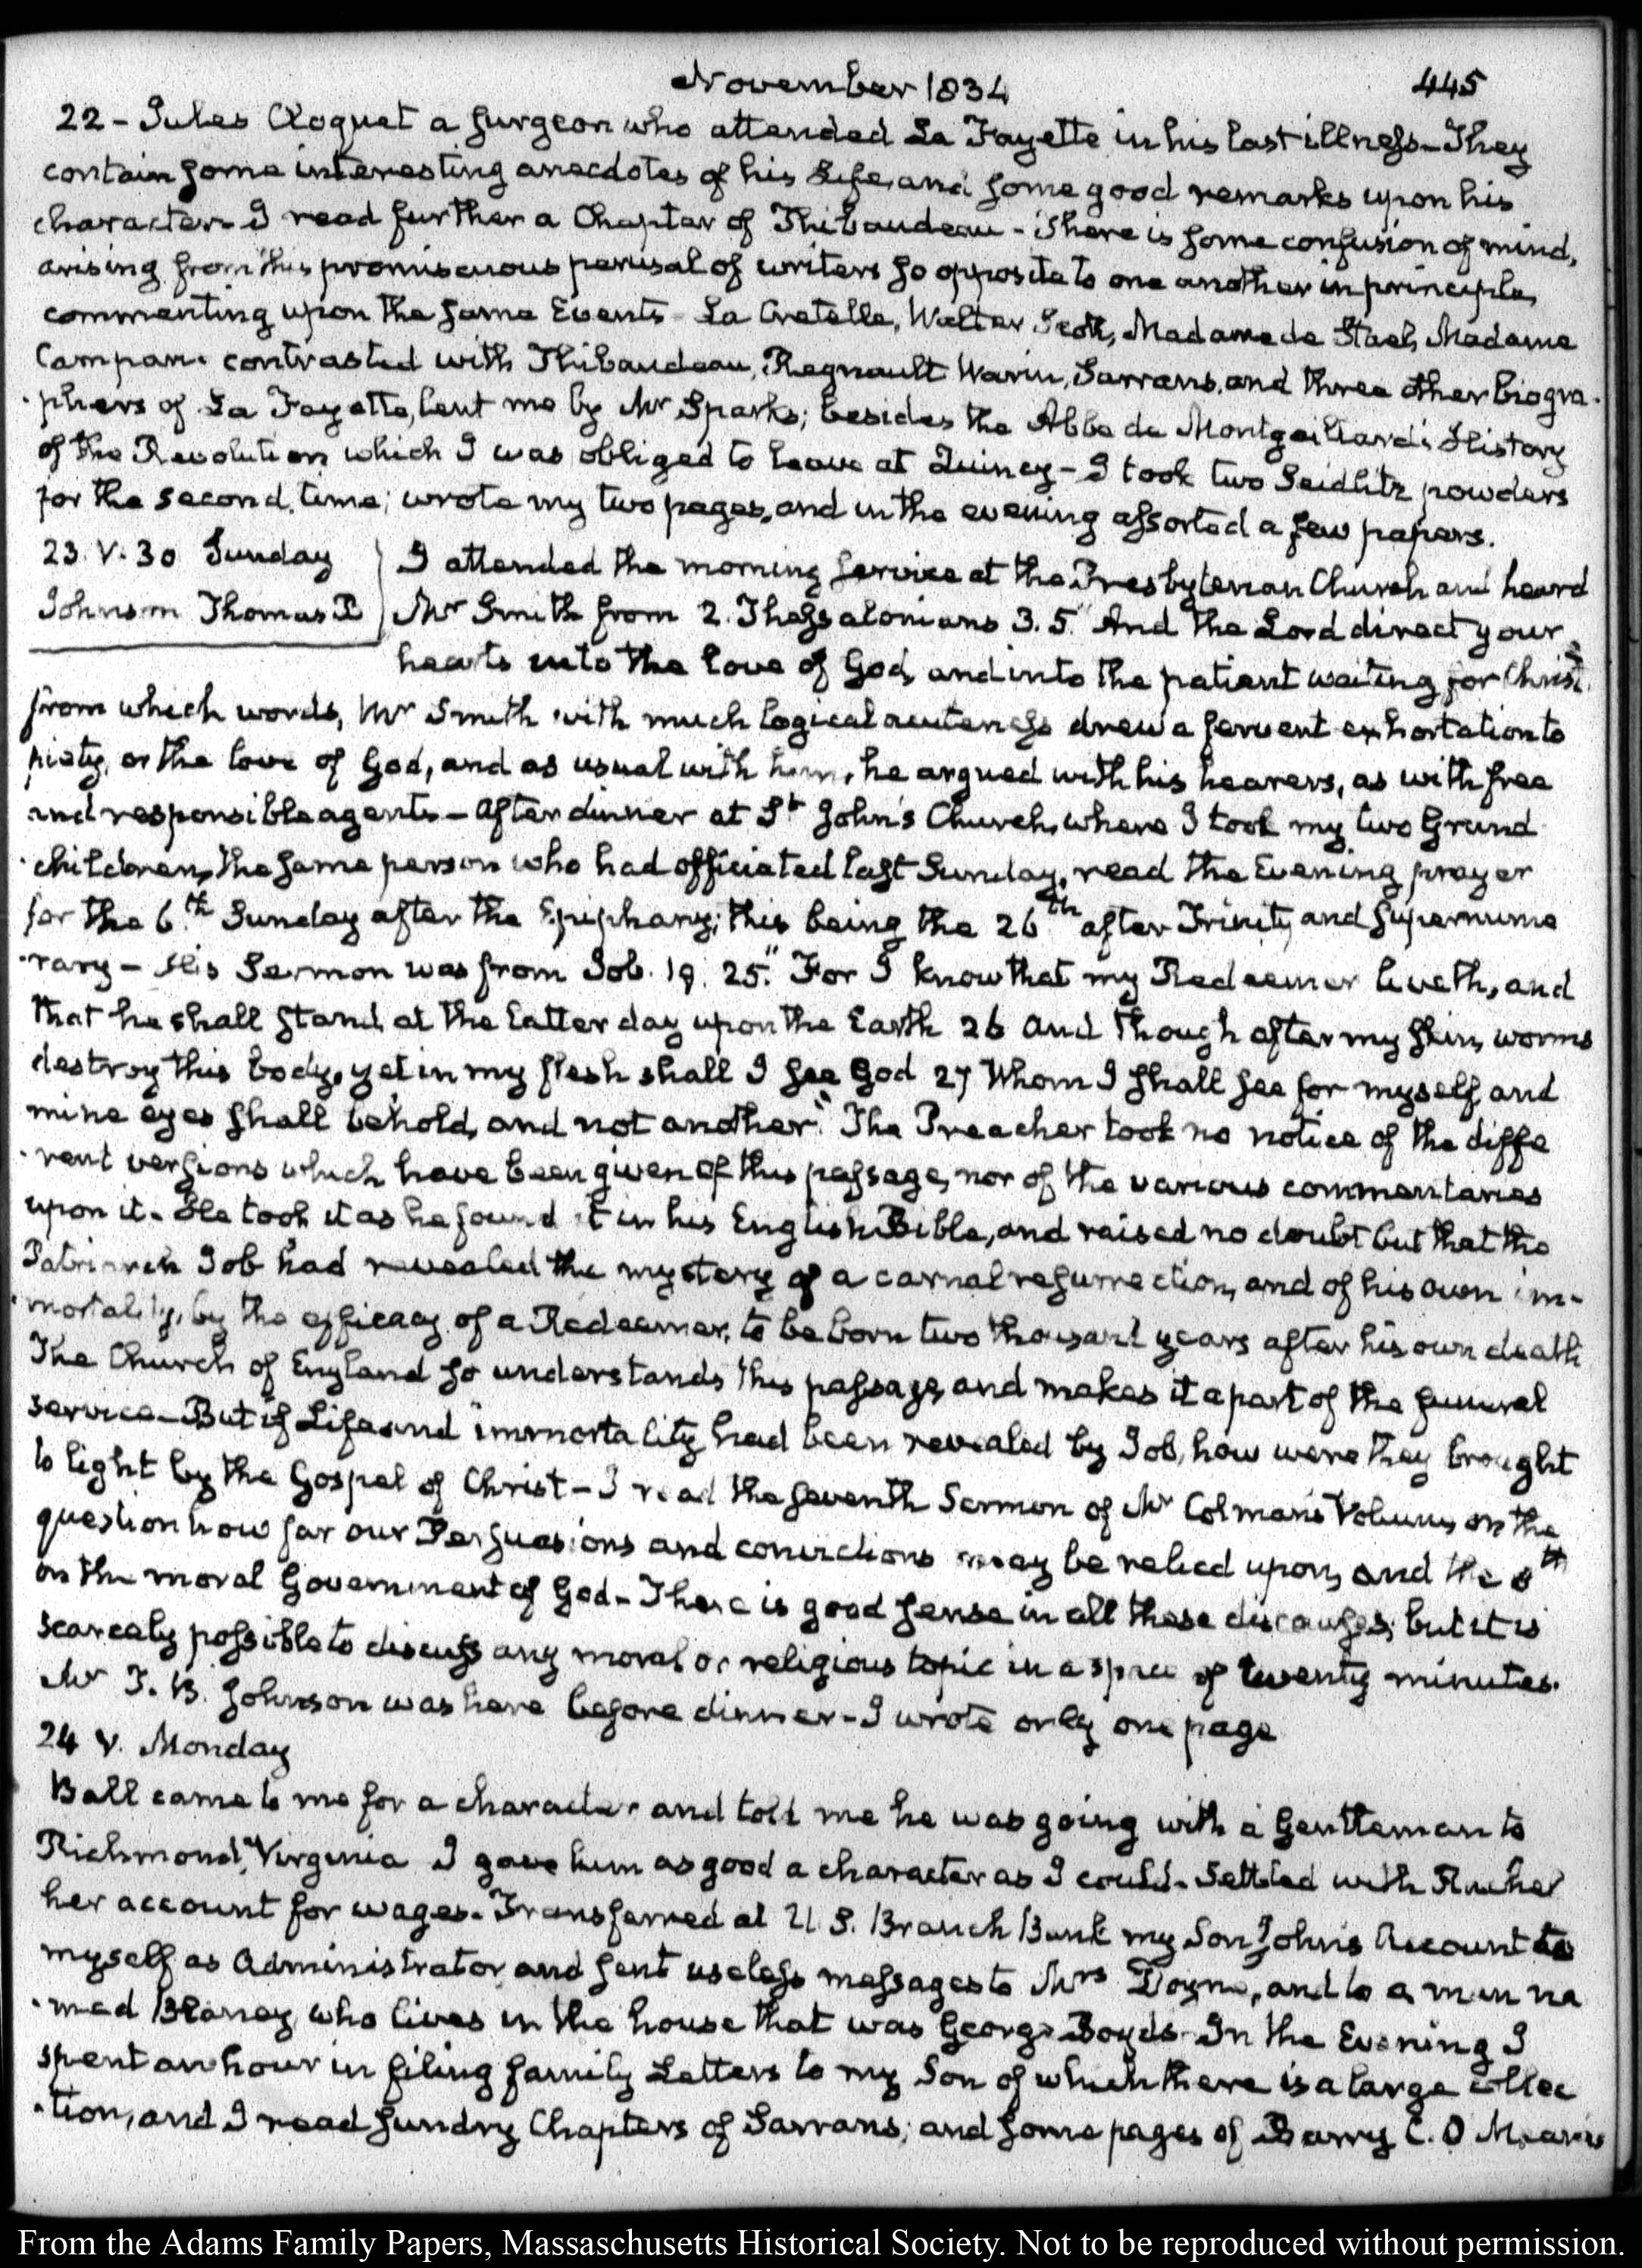 November 1834
445
22 - Jules Cloquet a surgeon who attended La Fayette in his last illness - They
contain some interesting anecdotes of his Life, and some good remarks upon his
character. I read further a Chapter of Thibaudeau - There is some confusion of mind,
arising from this promiscuous perusal of writers so opposite to one another in principle,
commenting upon the same Events La Cretelle, Walter Scott, Madame de Stael, Madame
Campan. contrasted with Thibaudeau, Regnault Warin, Sarrans, and three other biogra-
-phers of La Fayette, lent me by Mr Sparks; besides the Abbe de Montgaillard's History
of the Revolution which I was obliged to leave at Quincy - I took two Seidlitz powders
for the second time; wrote my two pages, and in the evening assorted a few papers.
23. V. 30 Sunday
Johnson Thomas B
I attended the morning service at the Presbyterian Church and heard
Mr Smith from 2. Thessalonians 3. 5. "And the Lord direct your
hearts into the love of God, and into the patient waiting for Christ"
from which words, Mr Smith with much logical acuteness drew a fervent exhortation to
piety, or the love of God, and as usual with him, he argued with his hearers, as with free
and responsible agents - After dinner at St John's Church, where I took my two Grand
-children, the same person who had officiated last Sunday, read the Evening prayer
for the 6th Sunday after the Epiphany; this being the 26th after Trinity and supernume
-rary - His Sermon was from Job. 19. 25. "For I know that my Redeemer liveth, and
that he shall stand at the latter day upon the Earth 26 And though after my skin, worms
destroy this body, yet in my flesh shall I see God 27 Whom I shall see for myself, and
mine eyes shall behold, and not another." The Preacher took no notice of the diffe
-rent versions which have been given of this passage, nor of the various commentaries
upon it. He took it as he found it in his English Bible, and raised no doubt but that the
Patriarch Job had revealed the mystery of a carnal resurrection, and of his own im-
-mortality, by the efficacy of a Redeemer, to be born two thousand years after his own death
The Church of England so understands this passage, and makes it a part of the funeral
service - But if Life and immortality had been revealed by Job, how were they brought
to light by the Gospel of Christ - I read the seventh Sermon of Mr Colman's Volume, on the
question how far our Persuasions and convictions may be relied upon, and the 8th
on the moral Government of God - There is good sense in all these discourses; but it is
scarcely possible to discuss any moral or religious topic in a space of twenty minutes.
Mr T. B. Johnson was here before dinner - I wrote only one page
24 V. Monday
Ball came to me for a character and told me he was going with a Gentleman to
Richmond, Virginia I gave him as good a character as I could. Settled with Rachel
her account for wages. Transferred at U. S. Branch Bank my Son John's Account to
myself as Administrator, and sent useless messages to Mrs Doyne, and to a man na
-med Blaney who lives in the house that was George Boyd's. In the Evening I
spent an hour in filing family Letters to my Son of which there is a large collec
-tion, and I read sundry Chapters of Sarrans; and some pages of Barry E. O Meara's
From the Adams Family Papers, Massaschusetts Historical Society. Not to be reproduced without permission.